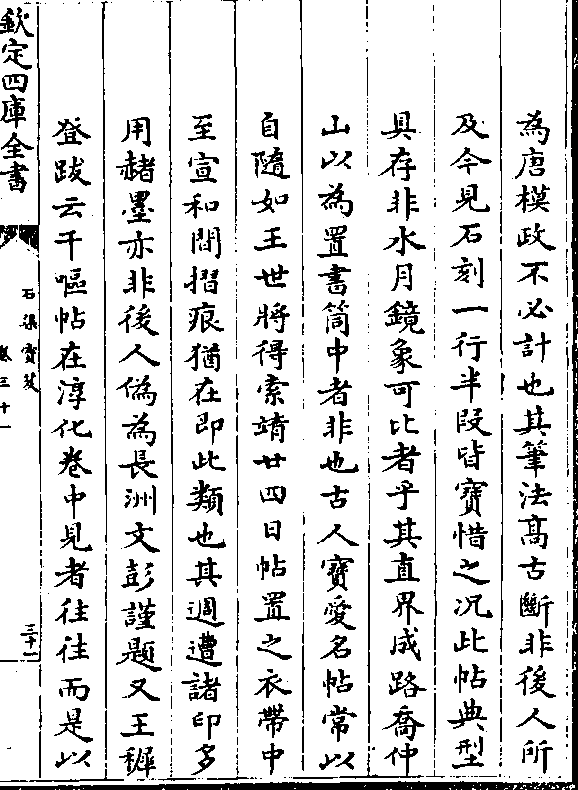 為唐模政不必計也其筆法髙古斷非後人所
及今見石刻一行半段皆寳惜之况此帖典型
具存非水月鏡象可比者乎其直界成路喬仲
山以為置書筒中者非也古人寳愛名帖常以
自隨如王世將得索靖廿四日帖置之衣帶中
至宣和間摺痕猶在即此類也其週遭諸印多
用赭墨亦非後人偽為長洲文彭謹題又王穉
登跋云千嘔帖在淳化卷中見者往往而是以
欽定四庫全書
石渠寳笈
卷三十一
三十一